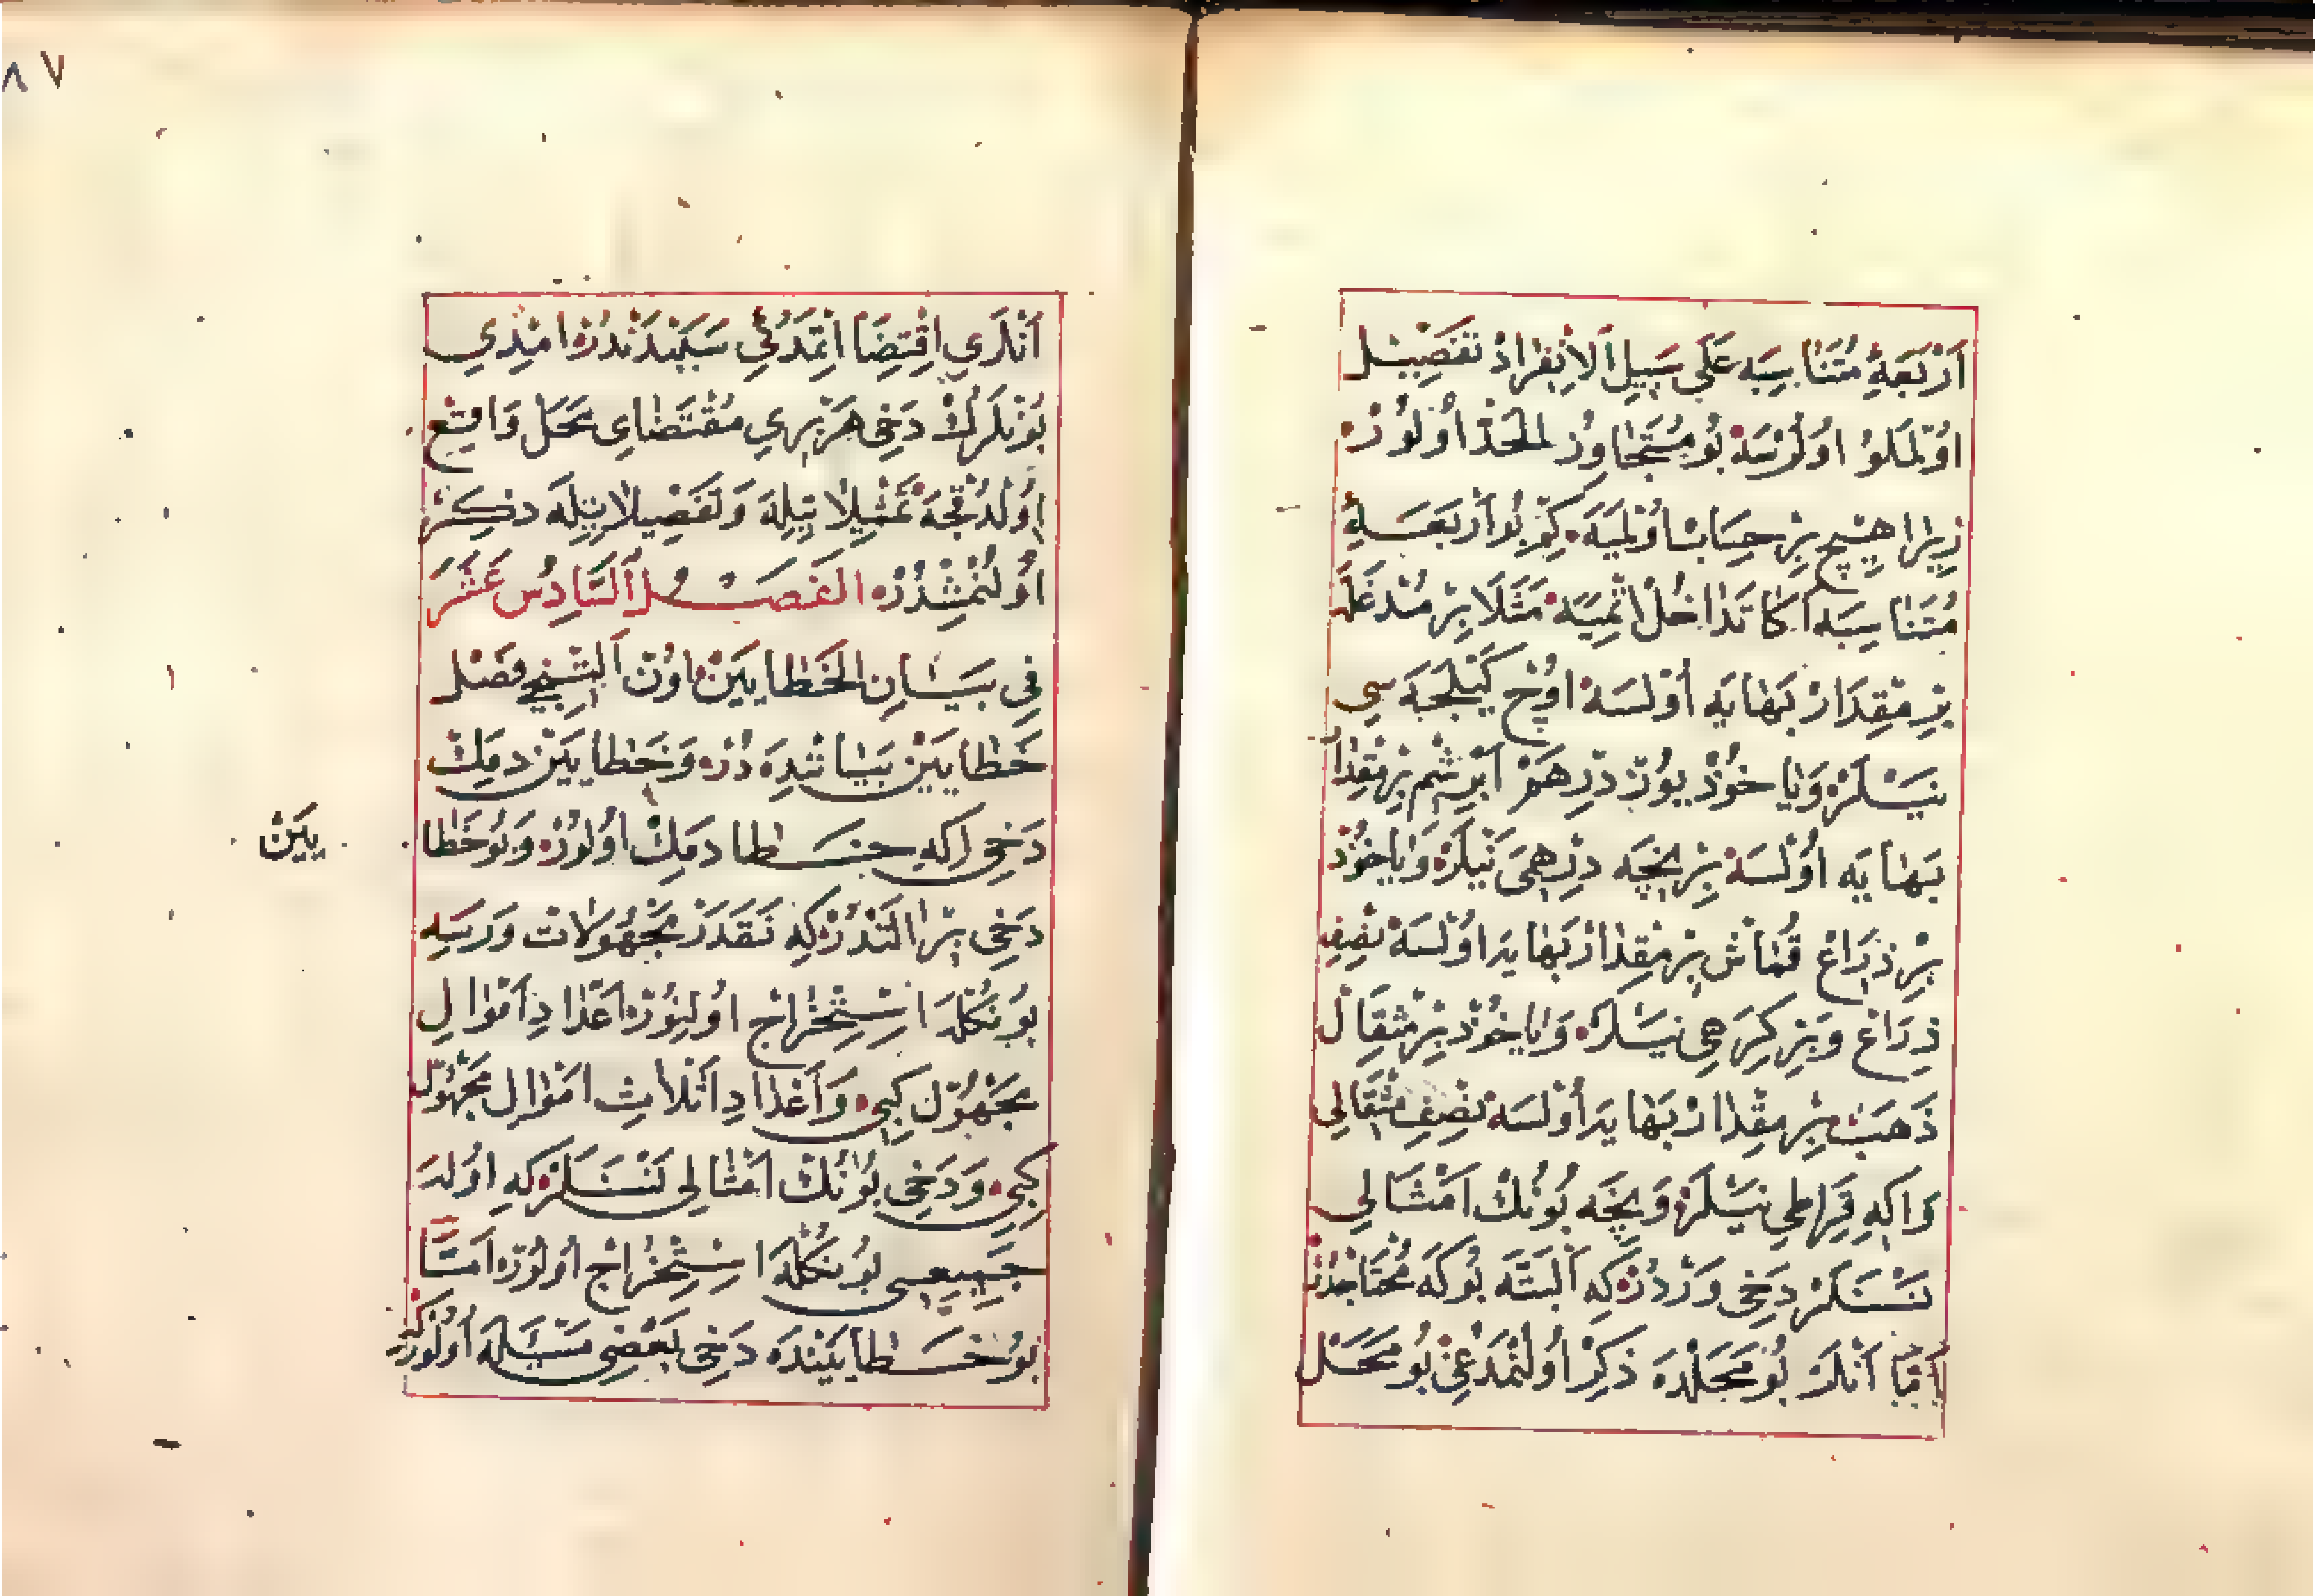 اَرْبَعَهٴِ مُتَنَاسِبَه عَلَی سَبِيلِ اَلْاِنْفِرَادْ تَفْصِيـل
اوُنْمَلوُ اوُلُرْسَه بُو مُتَجَاوِزُ الْحَدّ اُولوُرْ
زِيرَا هِيـچ بِرْ حِسَابْ اوُلْمَيَه كِه بُو اَرْبَعَـهٴِ
مُتَنَاسِبَه اَكَا تَدَاخُلْ اِتْمِيَه مَثَلَا بِرْ مُدْ غَلَّه
بِرْ مِقْدَارْ بَهَايَه اُولْسَه اوُچ كَيْلَجَه سِی
نَيْسَلَرْ وَيَا خُوذْ يوُزْ دِرْهَمْ اَبْرِيشِمْ بِرْ مِقْدَارْ
بَهَايَه اوُلْسَه بِرْ نِچَه دِرْهَمِی نَيْلَرْ وَيَاخُوذْ
بِرْ ذِرَاعْ قُمَاشْ بِرْ مِقْدَارْ بَهَايَه اوُلْسَه نِصْفِ
ذِرَاعْ وَبِرْ كِرَهِی نَيْسَلَرْ وَيَاخُوذْ بِرْ مِثْقَالْ
ذَهَبْ بِرْ مِقْدَارْ بَهَايَه اُولْسَه نِصْفِ مِثْقَالِی
وَاكِه قِرَاطِی نَيْسَلَرْ وَنِچَه بُونُكْ اَمْثَالِی
نَسْنَلَرْ دَخِی وَرْدُرْ كِه اَلْبَتَّه بُوكَه مُحْتَاجْدُرْ
اَمَّا اَنْلَرْ بُو مَحَلْدَه ذِكِرْ اُولُنْمَدُغِی بُو مَحَـلْ
٨٧
اَنْلَرِی اِقْتِضَا اِتْمَدُكِی سَبَبِنْدَنْدُرْ اِمْدِی
بُونْلَرُكْ دَخِی هَرْبِرِی مُقْتَضَایِ مَحَلْ وَاقِـعْ
اُولْدُقْچَه تَمْثِيلَاتِيلَه وَتَفْصِيلَاتِيلَه ذِكِـرْ
اُولُنْمِشْدُرْ الْفَصْـلُ اَلسَّادِسُ عَشَرَ
فِی بَيَـانِ الْخَطَايَيْنْ اوُنْ اَلْتِنْجِی فَصْل
خَطَايَيْنْ بَيَانِنْدَه دُرْ وَخَطَايَيْنْ دِمَكْ
دَخِی اِكِه خَـطَا دِمَكْ اُولوُرْ وَبُو خَطَا
يَيْنْ
دَخِی بِرْ اٰلَتْدُرْ كِه نَقَدَرْ مَجْهُولَاتْ وَرْسَه
بُونُكْلَه اِسْتِخْرَاجْ اُولِنُورْ اَعْدَادِ اَمْوَالِ
مَجْهُولْ كِبِی وَاَعْدَادِ اَثْلَاثِ اَمْوَالِ مَجْهُولْ
كِبِی وَدَخِی بُونُكْ اَمْثَالِی نَسْنَـلَرْ كِه اُولَه
جَمِيعِسِی بُونُكْلَه اِسْتِخْرَاجْ اُولوُرْ اَمَّـا
بُو خَـطَايَيْنْدَه دَخِی بَعْضِی مَسْئَلَه اُولُورْكِه